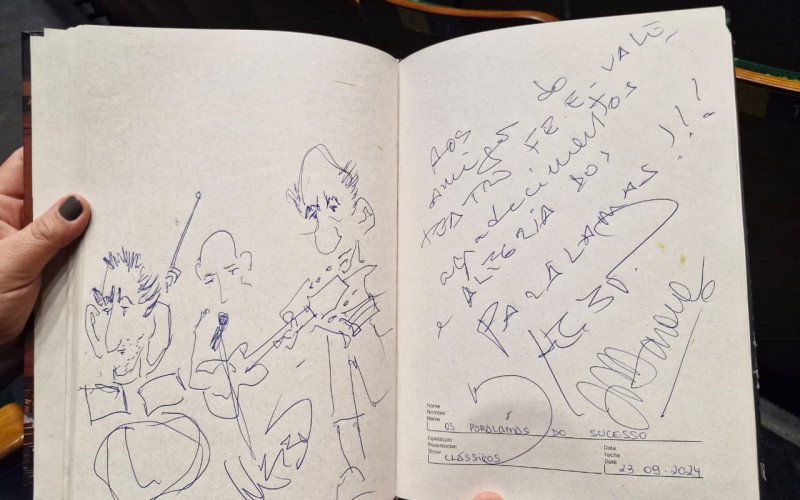 AOS
amigos do
TEATRO FEEVALE,
agradecimentos
e ALEGRIA DOS
PARALAMAS!!!
Nome
Nombre
Name
OS PARALAMAS DO SUCESSO
Espetáculo
Presentación
Show
CLÁSSICOS
Data
Fecha
Date
23.09.2024